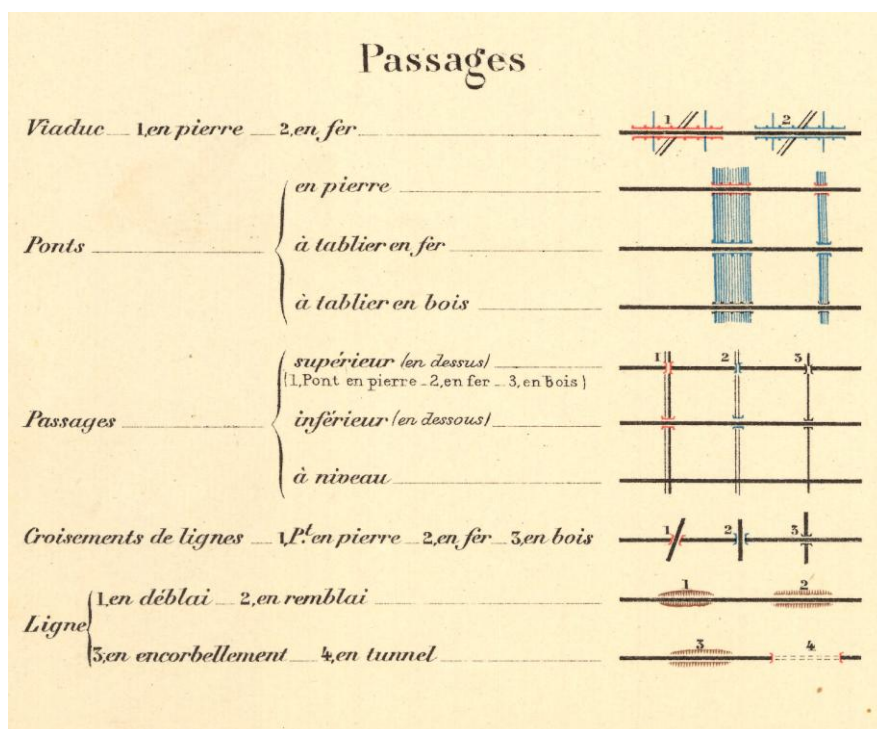 Passages
Viaduc 1, en pierre 2, en fer 1 2
en pierre
Ponts à tablier en fer
à tablier en bois
supérieur (en dessus) 1 2 3
(1, Pont en pierre - 2, en fer - 3, en bois)
Passages inférieur (en dessous)
à niveau
Croisements de lignes 1, Pt. en pierre 2, en fer 3, en bois 1 2 3
1, en déblai 2, en remblai 1 2
Ligne
3, en encorbellement 4, en tunnel 3 4